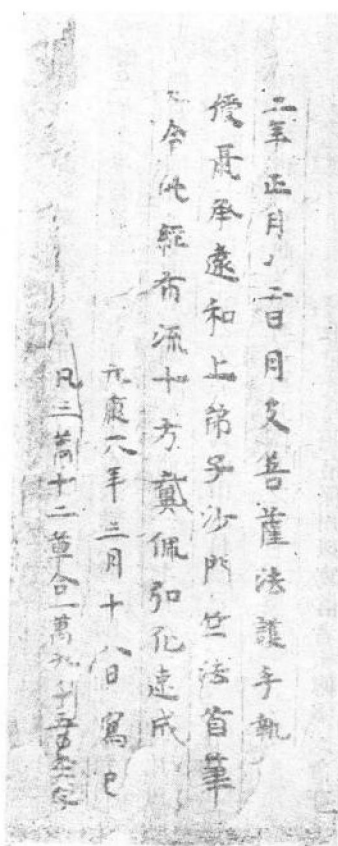 二年正月 二日月支菩薩法護手執
授聶承遠和上弟子沙門竺法首筆
令此經布流十方戴佩弘化速成
元康六年三月十八日寫已
凡三萬十二章合一萬九千五百